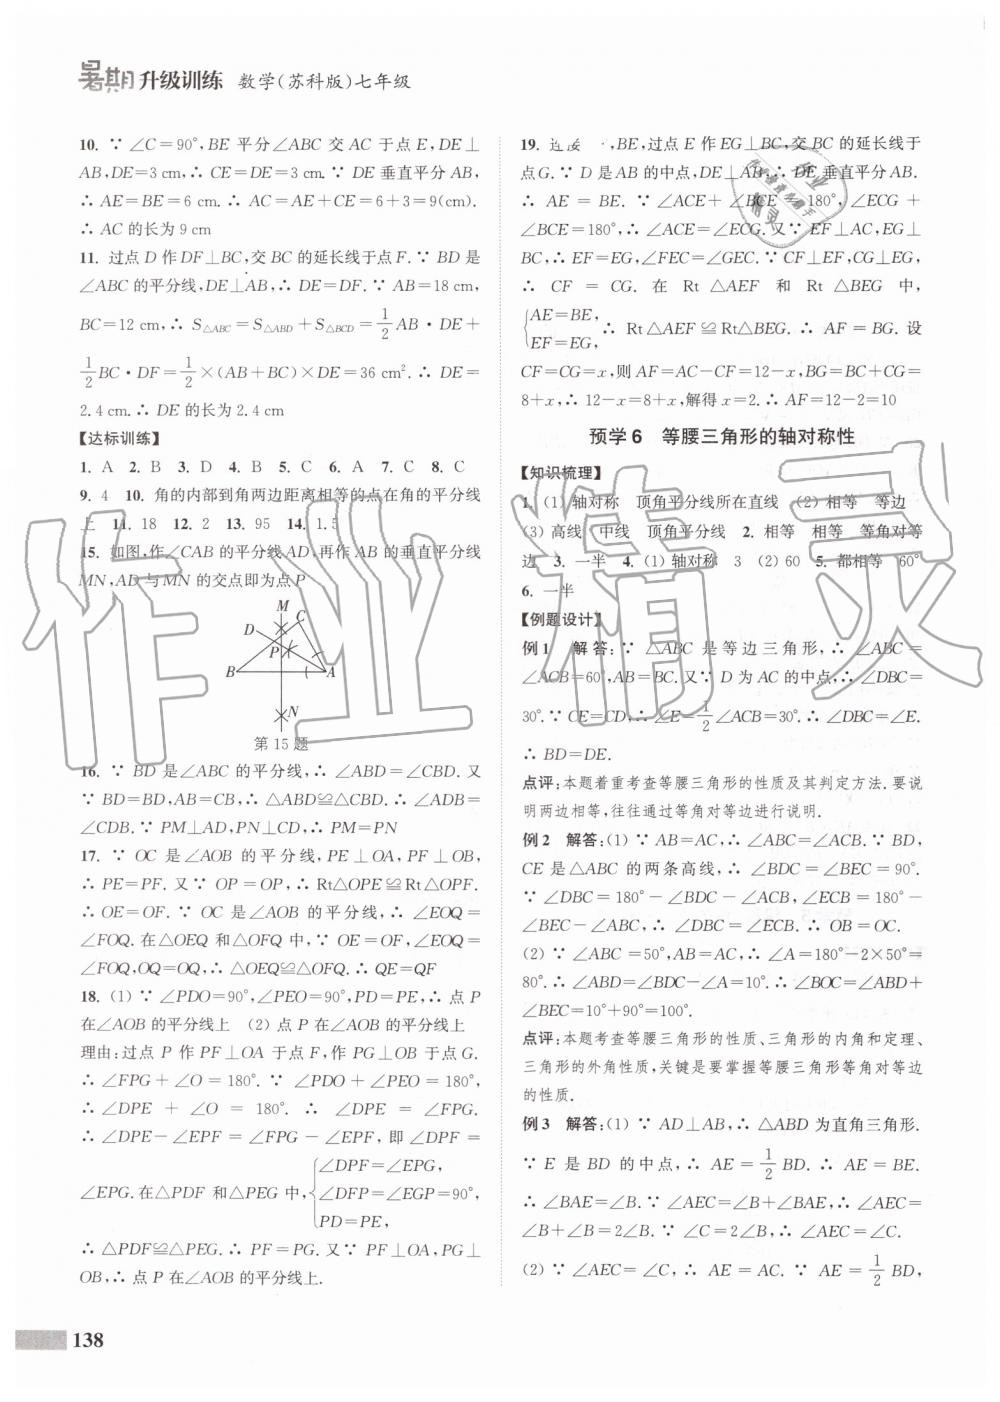 暑期升级训练 数学(苏科版)七年级
10. ∵ ∠C=90°,BE 平分∠ABC 交 AC 于点 E,DE⊥
AB,DE=3 cm,∴ CE=DE=3 cm.∵ DE 垂直平分 AB,
∴ AE=BE=6 cm.∴ AC=AE+CE=6+3=9(cm).
∴ AC 的长为 9 cm
11. 过点 D 作 DF⊥BC,交 BC 的延长线于点 F.∵ BD 是
∠ABC 的平分线,DE⊥AB,∴ DE=DF.∵ AB=18 cm,
BC=12 cm,∴ S△ABC=S△ABD+S△BCD=1/2 AB·DE+
1/2 BC·DF=1/2×(AB+BC)×DE=36 cm².∴ DE=
2.4 cm.∴ DE 的长为 2.4 cm
【达标训练】
1. A 2. B 3. D 4. B 5. C 6. A 7. C 8. C
9. 4 10. 角的内部到角两边距离相等的点在角的平分线
上 11. 18 12. 2 13. 95 14. 1.5
15. 如图,作∠CAB 的平分线 AD,再作 AB 的垂直平分线
MN,AD 与 MN 的交点即为点 P
M
C
D
P
B
A
N
第 15 题
16. ∵ BD 是∠ABC 的平分线,∴ ∠ABD=∠CBD.又
∵ BD=BD,AB=CB,∴ △ABD≌△CBD.∴ ∠ADB=
∠CDB.∵ PM⊥AD,PN⊥CD,∴ PM=PN
17. ∵ OC 是∠AOB 的平分线,PE⊥OA,PF⊥OB,
∴ PE=PF.又∵ OP=OP,∴ Rt△OPE≌Rt△OPF.
∴ OE=OF.∵ OC 是∠AOB 的平分线,∴ ∠EOQ=
∠FOQ.在△OEQ 和△OFQ 中,∵ OE=OF,∠EOQ=
∠FOQ,OQ=OQ,∴ △OEQ≌△OFQ.∴ QE=QF
18. (1) ∵ ∠PDO=90°,∠PEO=90°,PD=PE,∴ 点 P
在∠AOB 的平分线上 (2) 点 P 在∠AOB 的平分线上
理由:过点 P 作 PF⊥OA 于点 F,作 PG⊥OB 于点 G.
∴ ∠FPG+∠O=180°.∵ ∠PDO+∠PEO=180°,
∴ ∠DPE+∠O=180°.∴ ∠DPE=∠FPG.
∴ ∠DPE-∠EPF=∠FPG-∠EPF,即∠DPF=
∠EPG.在△PDF 和△PEG 中,{∠DPF=∠EPG,
∠DFP=∠EGP=90°,
PD=PE,
∴ △PDF≌△PEG.∴ PF=PG.又∵ PF⊥OA,PG⊥
OB,∴ 点 P 在∠AOB 的平分线上.
138
19. 连接 ,BE,过点 E 作 EG⊥BC,交 BC 的延长线于
点 G.∵ D 是 AB 的中点,DE⊥AB,∴ DE 垂直平分 AB.
∴ AE=BE.∵ ∠ACE+∠BCE=180°,∠ECG+
∠BCE=180°,∴ ∠ACE=∠ECG.又∵ EF⊥AC,EG⊥
BC,∴ EF=EG,∠FEC=∠GEC.∵ CF⊥EF,CG⊥EG,
∴ CF=CG.在 Rt△AEF 和 Rt△BEG 中,
{AE=BE,
EF=EG,∴ Rt△AEF≌Rt△BEG.∴ AF=BG.设
CF=CG=x,则 AF=AC-CF=12-x,BG=BC+CG=
8+x,∴ 12-x=8+x,解得 x=2.∴ AF=12-2=10
预学 6 等腰三角形的轴对称性
【知识梳理】
1. (1) 轴对称 顶角平分线所在直线 (2) 相等 等边
(3) 高线 中线 顶角平分线 2. 相等 相等 等角对等
边 3. 一半 4. (1) 轴对称 3 (2) 60 5. 都相等 60°
6. 一半
【例题设计】
例 1 解答:∵ △ABC 是等边三角形,∴ ∠ABC=
∠ACB=60°,AB=BC.又∵ D 为 AC 的中点,∴ ∠DBC=
30°.∵ CE=CD,∴ ∠E=1/2∠ACB=30°.∴ ∠DBC=∠E.
∴ BD=DE.
点评:本题着重考查等腰三角形的性质及其判定方法.要说
明两边相等,往往通过等角对等边进行说明.
例 2 解答:(1) ∵ AB=AC,∴ ∠ABC=∠ACB.∵ BD,
CE 是△ABC 的两条高线,∴ ∠BDC=∠BEC=90°.
∵ ∠DBC=180°-∠BDC-∠ACB,∠ECB=180°-
∠BEC-∠ABC,∴ ∠DBC=∠ECB.∴ OB=OC.
(2) ∵ ∠ABC=50°,AB=AC,∴ ∠A=180°-2×50°=
80°.∴ ∠ABD=∠BDC-∠A=10°.∴ ∠BOC=∠ABD+
∠BEC=10°+90°=100°.
点评:本题考查等腰三角形的性质、三角形的内角和定理、
三角形的外角性质,关键是要掌握等腰三角形等角对等边
的性质.
例 3 解答:(1) ∵ AD⊥AB,∴ △ABD 为直角三角形.
∵ E 是 BD 的中点,∴ AE=1/2 BD.∴ AE=BE.
∴ ∠BAE=∠B.∵ ∠AEC=∠B+∠BAE,∴ ∠AEC=
∠B+∠B=2∠B.∵ ∠C=2∠B,∴ ∠AEC=∠C.
(2) ∵ ∠AEC=∠C,∴ AE=AC.∵ AE=1/2 BD,
作业精灵